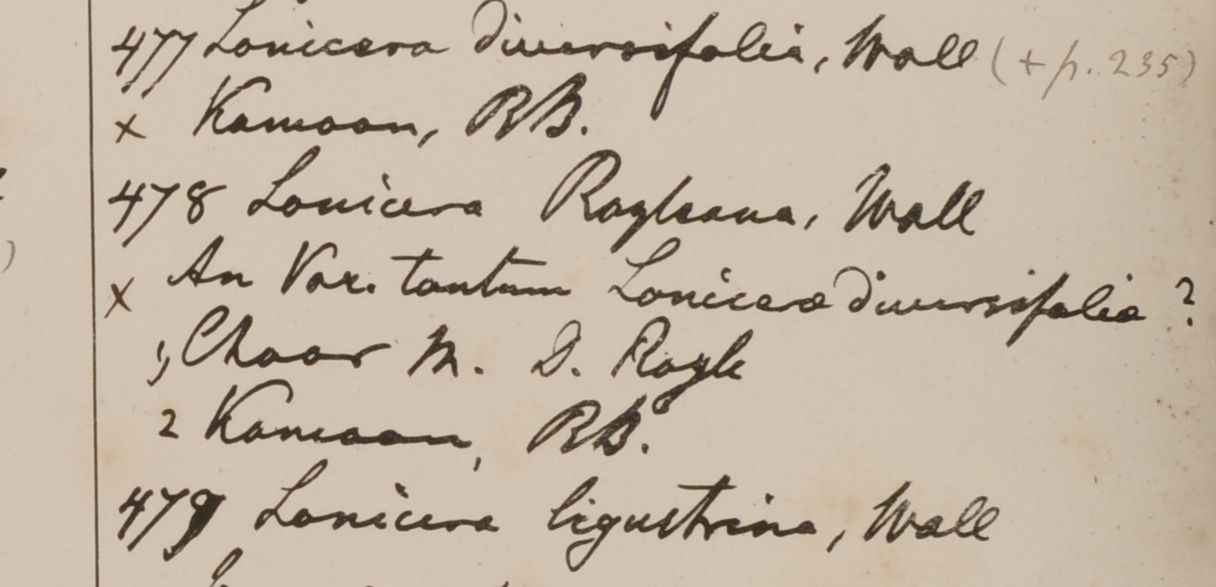 477 Lonicera diversifolia, Wall (+ p. 235)
x Kamaon, RB.
478 Lonicera Royleana, Wall
x An Var. tantum Loniceræ diversifolia ?
1, Choor M. D. Royle
2 Kamaon, RB.
479 Lonicera ligustrina, Wall